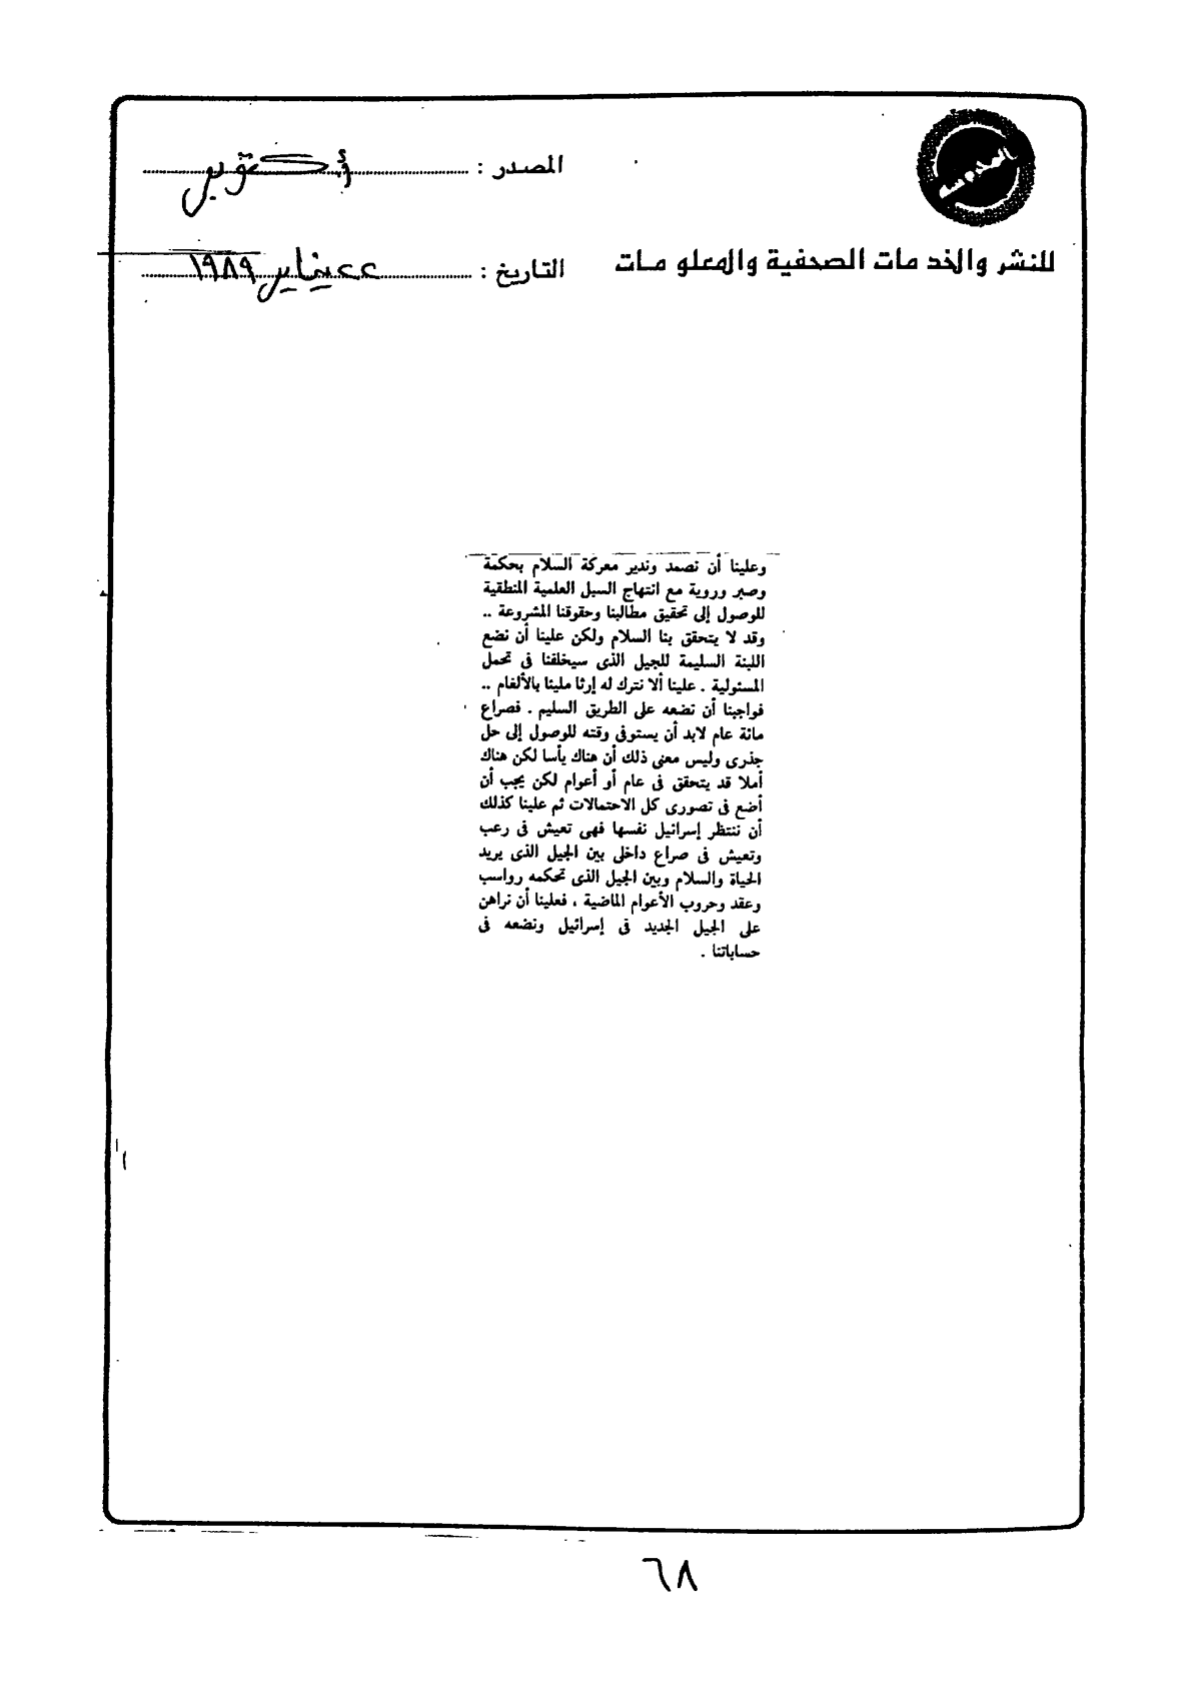 المصدر : أكتوبر
للنشر والخدمات الصحفية والمعلومات
التاريخ : ٢٢ يناير ١٩٨٩
وعلينا أن نصمد وندير معركة السلام بحكمة
وصبر وروية مع انتهاج السبل العلمية المنطقية
للوصول إلى تحقيق مطالبنا وحقوقنا المشروعة ..
وقد لا يتحقق بنا السلام ولكن علينا أن نضع
اللبنة السليمة للجيل الذى سيخلفنا فى تحمل
المسئولية . علينا ألا نترك له إرثا مليئا بالألغام ..
فواجبنا أن نضعه على الطريق السليم . فصراع
مائة عام لابد أن يستوفى وقته للوصول إلى حل
جذرى وليس معنى ذلك أن هناك يأسا لكن هناك
أملا قد يتحقق فى عام أو أعوام لكن يجب أن
أضع فى تصورى كل الاحتمالات ثم علينا كذلك
أن ننتظر إسرائيل نفسها فهى تعيش فى رعب
وتعيش فى صراع داخلى بين الجيل الذى يريد
الحياة والسلام وبين الجيل الذى تحكمه رواسب
وعقد وحروب الأعوام الماضية ، فعلينا أن نراهن
على الجيل الجديد فى إسرائيل ونضعه فى
حساباتنا .
٦٨